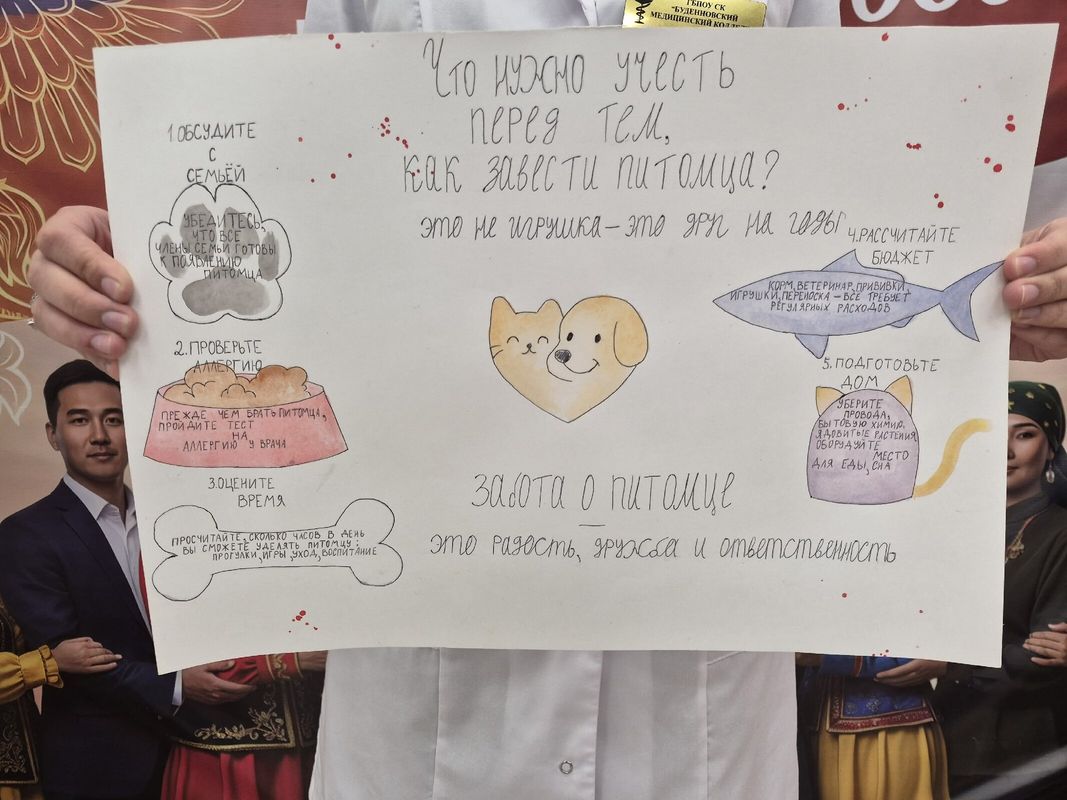 ГБПОУ СК
"БУДЕННОВСКИЙ
МЕДИЦИНСКИЙ КОЛЛЕ
Что нужно учесть
перед тем,
как завести питомца?
это не игрушка – это друг на годы
1.ОБСУДИТЕ
С
СЕМЬЁЙ
УБЕДИТЕСЬ,
ЧТО ВСЕ
ЧЛЕНЫ СЕМЬИ ГОТОВЫ
К ПОЯВЛЕНИЮ
ПИТОМЦА
2.ПРОВЕРЬТЕ
АЛЛЕРГИЮ
ПРЕЖДЕ ЧЕМ БРАТЬ ПИТОМЦА,
ПРОЙДИТЕ ТЕСТ
НА
АЛЛЕРГИЮ У ВРАЧА
3.ОЦЕНИТЕ
ВРЕМЯ
ПРОСЧИТАЙТЕ, СКОЛЬКО ЧАСОВ В ДЕНЬ
ВЫ СМОЖЕТЕ УДЕЛЯТЬ ПИТОМЦУ:
ПРОГУЛКИ, ИГРЫ, УХОД, ВОСПИТАНИЕ
4.РАССЧИТАЙТЕ
БЮДЖЕТ
КОРМ, ВЕТЕРИНАР, ПРИВИВКИ,
ИГРУШКИ, ПЕРЕНОСКА – ВСЕ ТРЕБУЕТ
РЕГУЛЯРНЫХ РАСХОДОВ
5.ПОДГОТОВЬТЕ
ДОМ
УБЕРИТЕ
ПРОВОДА,
БЫТОВУЮ ХИМИЮ,
ЯДОВИТЫЕ РАСТЕНИЯ
ОБОРУДУЙТЕ
МЕСТО
ДЛЯ ЕДЫ, СНА
Забота о питомце
–
это радость, дружба и ответственность